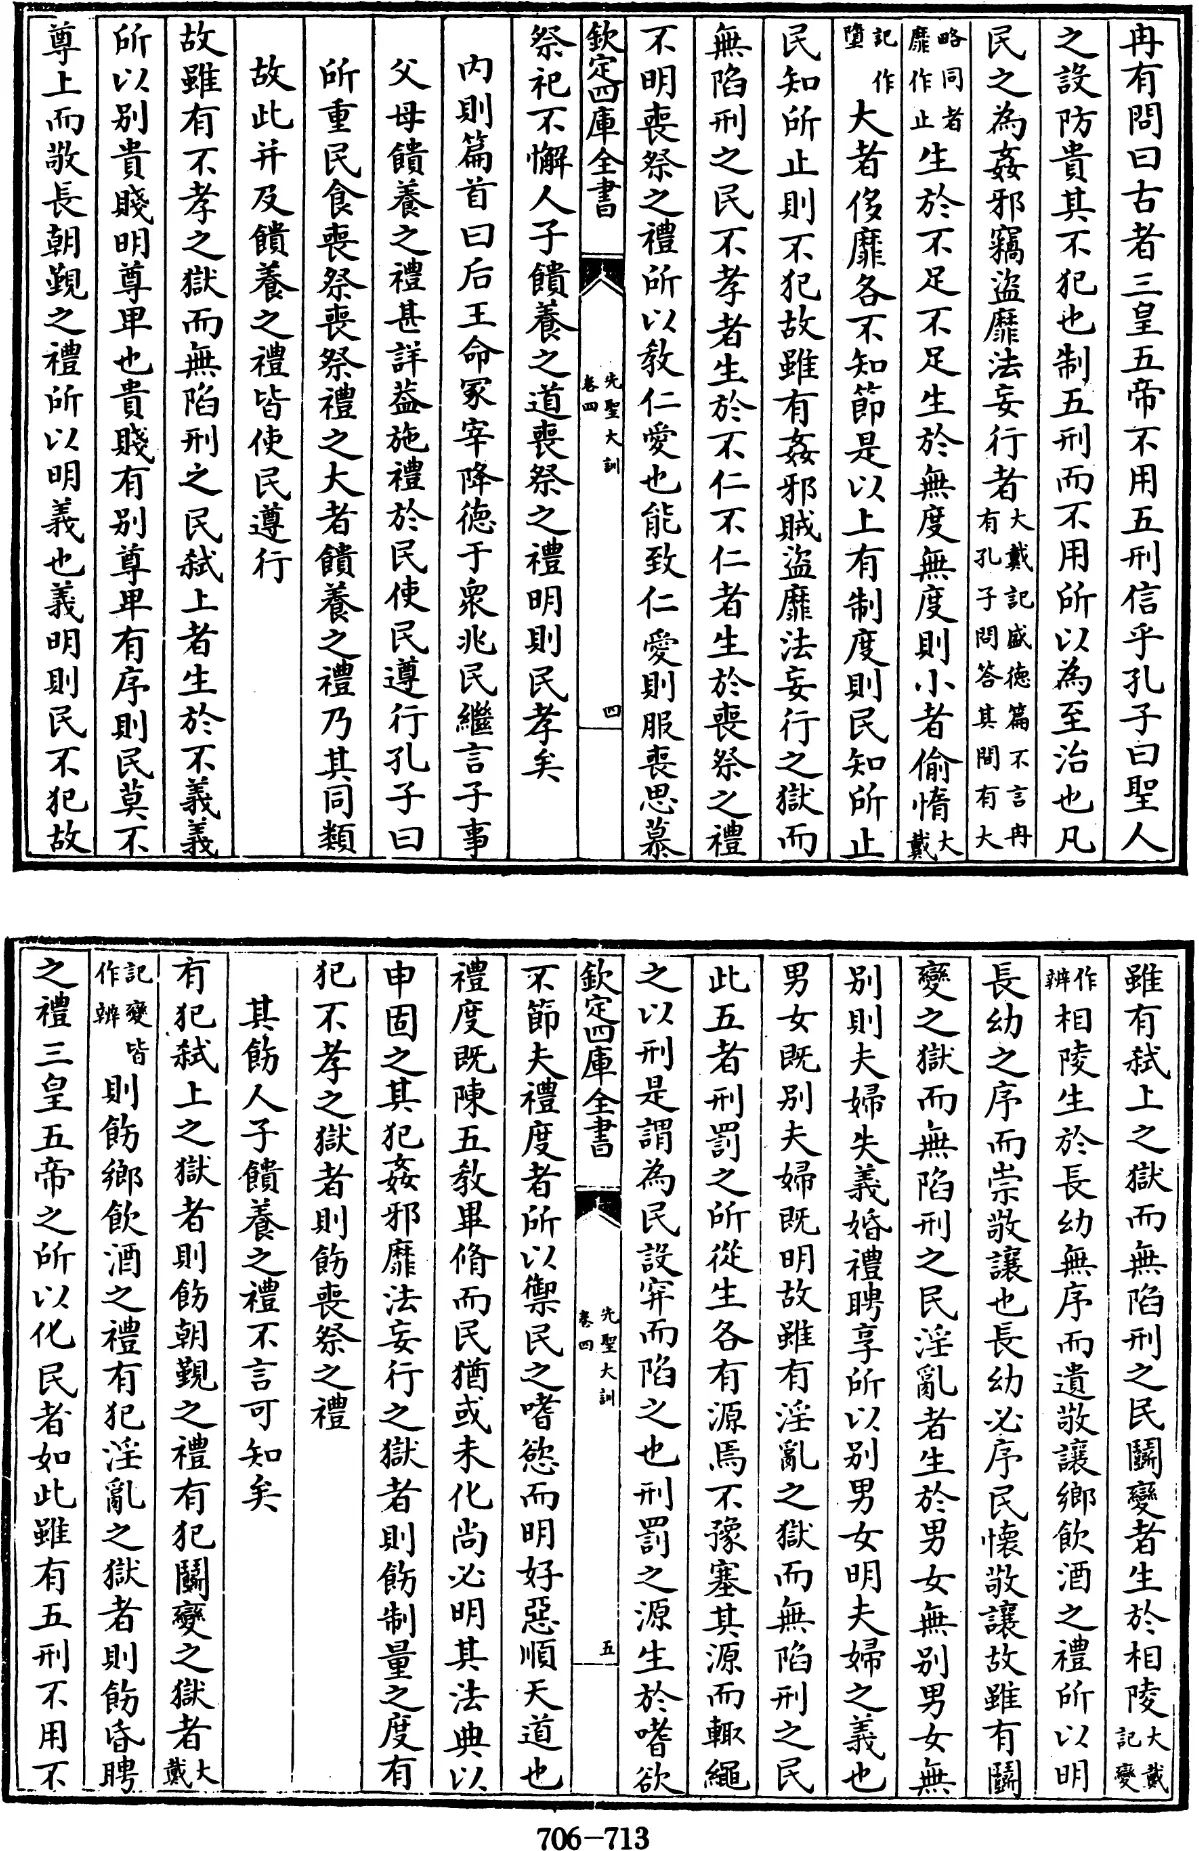 冉有問曰古者三皇五帝不用五刑信乎孔子曰聖人
之設防貴其不犯也制五刑而不用所以為至治也凡
民之為姦邪竊盜靡法妄行者大戴記盛德篇不言冉有孔子問答其間有大
略同者靡作止生於不足不足生於無度無度則小者偷惰大戴
記作墮大者侈靡各不知節是以上有制度則民知所止
民知所止則不犯故雖有姦邪賊盜靡法妄行之獄而
無陷刑之民不孝者生於不仁不仁者生於喪祭之禮
不明喪祭之禮所以教仁愛也能致仁愛則服喪思慕
欽定四庫全書 先聖大訓 卷四 四
祭祀不懈人子饋養之道喪祭之禮明則民孝矣
内則篇首曰后王命冢宰降德于衆兆民繼言子事
父母饋養之禮甚詳葢施禮於民使民遵行孔子曰
所重民食喪祭喪祭禮之大者饋養之禮乃其同類
故此并及饋養之禮皆使民遵行
故雖有不孝之獄而無陷刑之民弑上者生於不義義
所以別貴賤明尊卑也貴賤有別尊卑有序則民莫不
尊上而敬長朝覲之禮所以明義也義明則民不犯故
雖有弑上之獄而無陷刑之民鬭變者生於相陵大戴記變
作辨相陵生於長幼無序而遺敬讓鄉飲酒之禮所以明
長幼之序而崇敬讓也長幼必序民懷敬讓故雖有鬭
變之獄而無陷刑之民淫亂者生於男女無別男女無
別則夫婦失義婚禮聘享所以別男女明夫婦之義也
男女既別夫婦既明故雖有淫亂之獄而無陷刑之民
此五者刑罰之所從生各有源焉不豫塞其源而輒繩
之以刑是謂為民設穽而陷之也刑罰之源生於嗜欲
欽定四庫全書 先聖大訓 卷四 五
不節夫禮度者所以禦民之嗜慾而明好惡順天道也
禮度既陳五教畢脩而民猶或未化尚必明其法典以
申固之其犯姦邪靡法妄行之獄者則飭制量之度有
犯不孝之獄者則飭喪祭之禮
其飭人子饋養之禮不言可知矣
有犯弑上之獄者則飭朝覲之禮有犯鬭變之獄者大戴
記變皆作辨則飭鄉飲酒之禮有犯淫亂之獄者則飭昏聘
之禮三皇五帝之所以化民者如此雖有五刑不用不
706-713